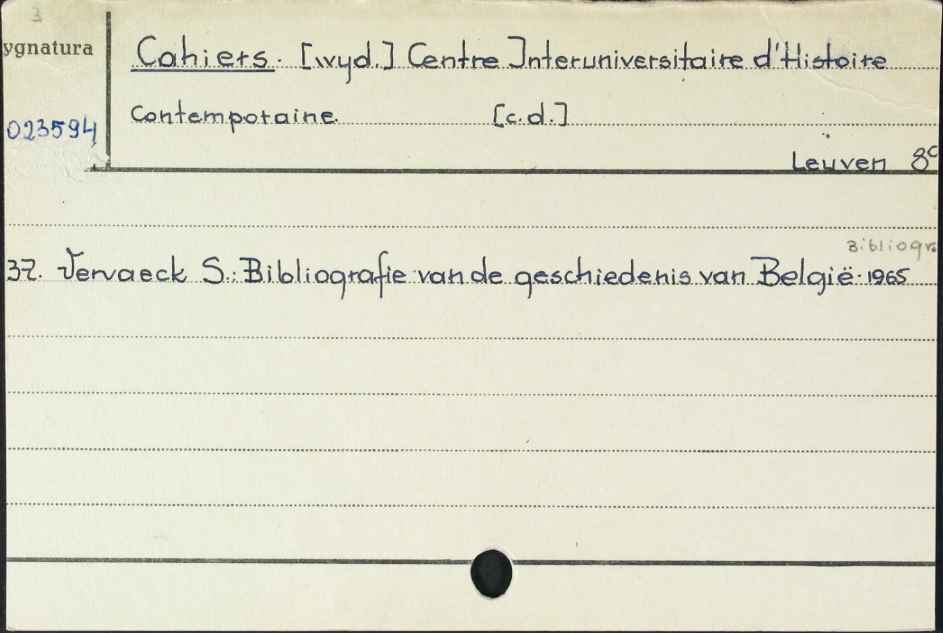 3
ygnatura
Cahiers. [wyd.] Centre Interuniversitaire d'Histoire
023594
Contemporaine. [c.d.]
Leuven 8°
Bibliogra
37. Vervaeck S.: Bibliografie van de geschiedenis van België. 1965